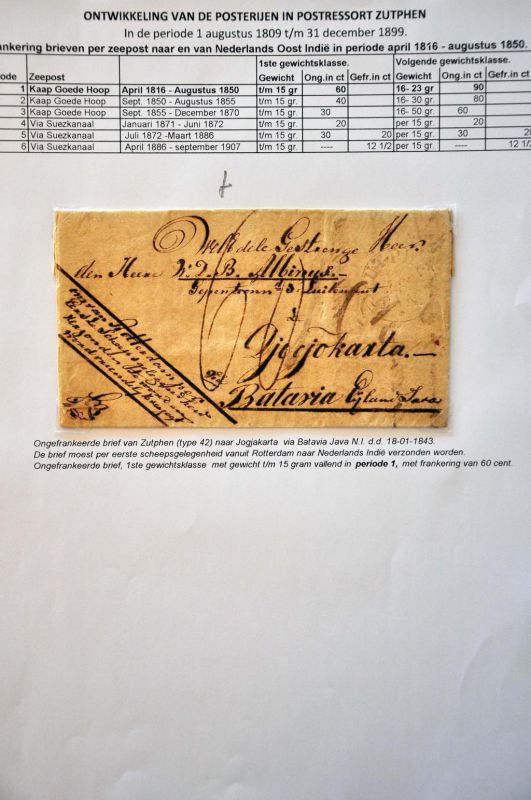 ONTWIKKELING VAN DE POSTERIJEN IN POSTRESSORT ZUTPHEN
In de periode 1 augustus 1809 t/m 31 december 1899.
ankering brieven per zeepost naar en van Nederlands Oost Indië in periode april 1816 - augustus 1850.
1ste gewichtsklasse. Volgende gewichtsklasse.
ode Zeepost Gewicht Ong.in ct Gefr.in ct Gewicht Ong.in ct Gefr.in ct
1 Kaap Goede Hoop April 1816 - Augustus 1850 t/m 15 gr 60 16- 23 gr 90
2 Kaap Goede Hoop Sept. 1850 - Augustus 1855 t/m 15 gr. 40 16- 30 gr. 80
3 Kaap Goede Hoop Sept. 1855 - December 1870 t/m 15 gr. 30 16- 50 gr. 60
4 Via Suezkanaal Januari 1871 - Juni 1872 t/m 15 gr. 20 per 15 gr. 20
5 Via Suezkanaal Juli 1872 -Maart 1886 t/m 15 gr. 30 20 per 15 gr. 30 2
6 Via Suezkanaal April 1886 - september 1907 t/m 15 gr. ---- 12 1/2 per 15 gr. ---- 12 1/2
Gestrenge Heer
den Heere
Djocjokarta.
Batavia Eyland Java
Ongefrankeerde brief van Zutphen (type 42) naar Jogjakarta via Batavia Java N.I. d.d. 18-01-1843.
De brief moest per eerste scheepsgelegenheid vanuit Rotterdam naar Nederlands Indië verzonden worden.
Ongefrankeerde brief, 1ste gewichtsklasse met gewicht t/m 15 gram vallend in periode 1, met frankering van 60 cent.